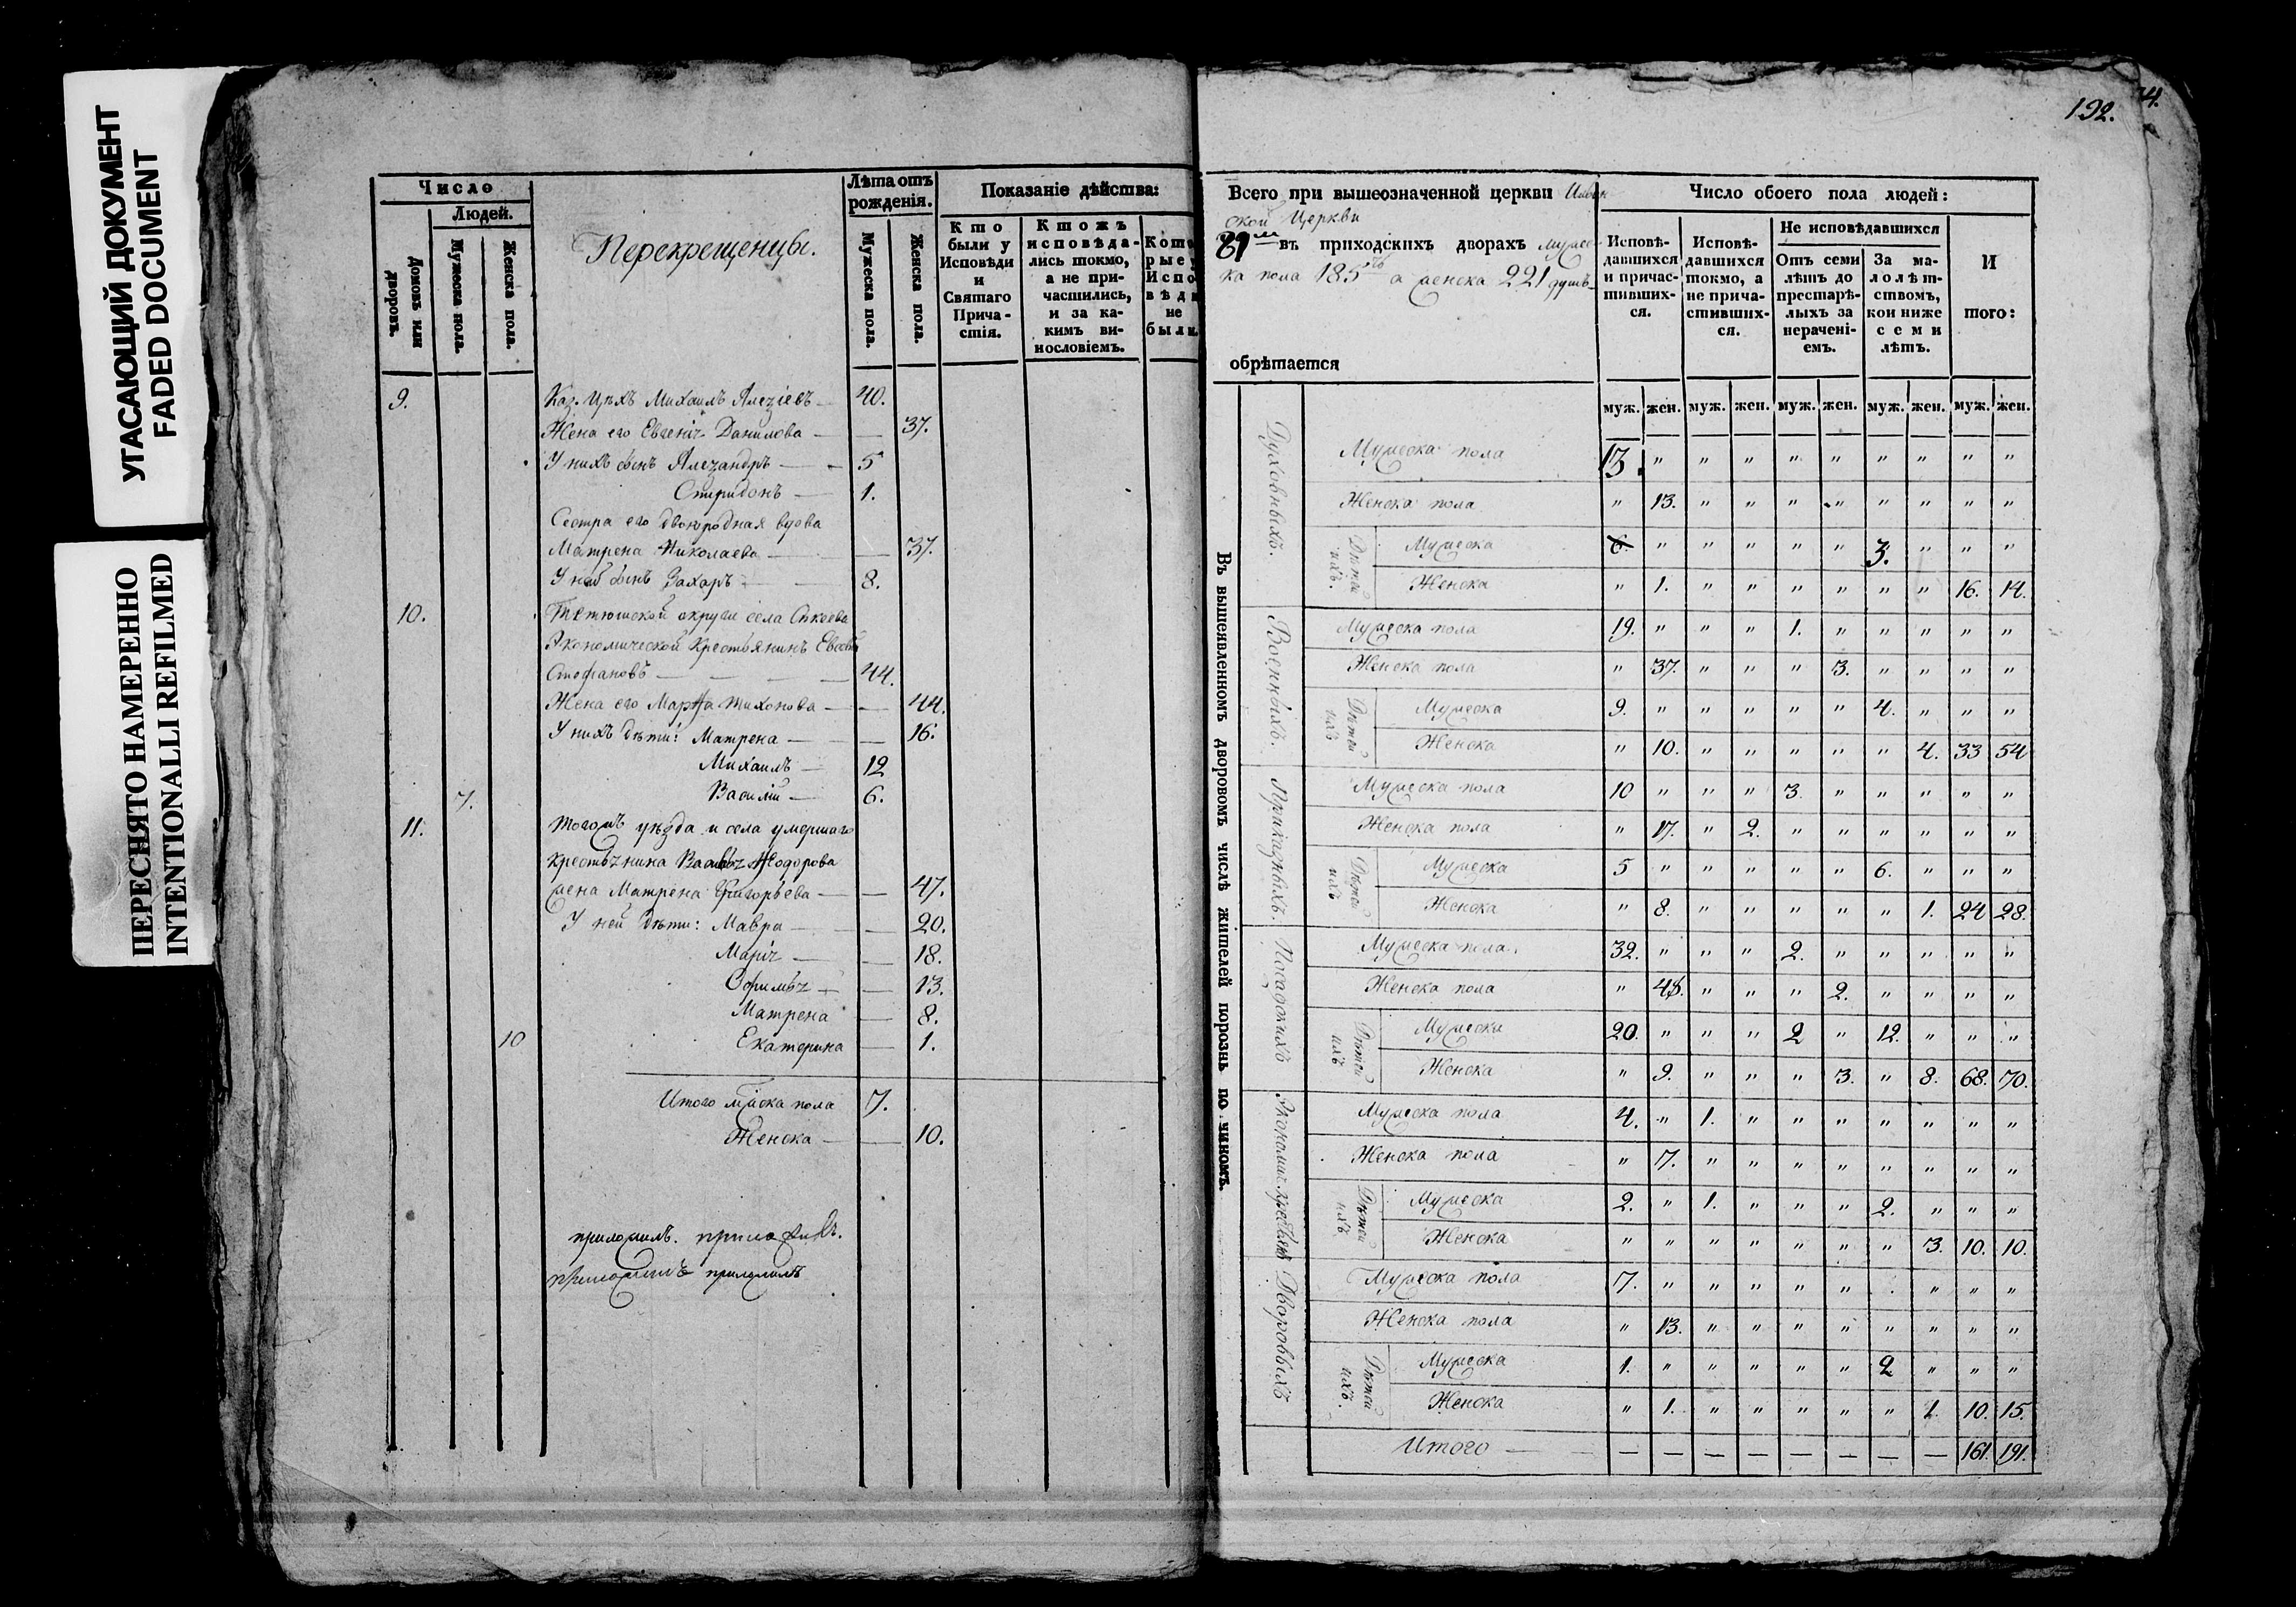 УГАСАЮЩИЙ ДОКУМЕНТ
FADED DOCUMENT
ПЕРЕСНЯТО НАМЕРЕННО
INTENTIONALLI REFILMED
Число
Людей.
Домовъ или дворовъ.
Мужеска пола.
Женска пола.
Перекрещенцы.
Лѣта отъ рожденія.
Мужеска пола.
Женска пола.
Показаніе дѣйства:
Кто были у Исповѣди и Святаго Причастія.
Ктожъ исповѣдались токмо, а не причастились, и за какимъ винословіемъ.
9. Михаилъ Алеѯіевъ 40.
Жена его Евгеніѧ Данилова — 37.
У нихъ сынъ Алеѯандръ 5
Спиридонъ 1.
Сестра его двоюродная вдова
Матрена Николаева — 37.
У ней сынъ Захаръ 8.
10. Тетюшской округи села
Экономической Крестьянинъ
Стефановъ 44.
Жена его Марѳа Тихонова — 44.
У нихъ дѣти: Матрена — 16.
Михаилъ 12
7. Василій 6.
11. Тогожъ уѣзда и села умершаго
крестьѧнина Ѳеодорова
жена Матрена Григорьева — 47.
У ней дѣти: Мавра — 20.
Маріѧ — 18.
— 13.
Матрена — 8.
10 Екатерина — 1.
Итого мужеска пола 7.
Женска — 10.
приложилъ.
приложилъ
192.
4.
Всего при вышеозначенной церкви
ской Церкви
81 въ приходскихъ дворахъ мужес-
ка пола 185 а женска 221 душъ
обрѣтается
Число обоего пола людей:
Исповѣдавшихся и причастившихся.
Исповѣдавшихся токмо, а не причастившихся.
Не исповѣдавшихся
Отъ семи лѣтъ до престарѣлыхъ за нерачені-емъ.
За малолѣтствомъ, кои ниже семи лѣтъ.
Итого:
муж. жен. муж. жен. муж. жен. муж. жен. муж. жен.
Въ вышеявленномъ дворовомъ числѣ жителей порознь по чиномъ.
Духовныхъ.
Мужеска пола 13. " " " " " " " " "
Женска пола " 13. " " " " " " " "
Дѣтей ихъ.
Мужеска 6. " " " " " 3. " " "
Женска " 1. " " " " " " 16. 14.
Военныхъ.
Мужеска пола 19. " " " 1. " " " " "
Женска пола " 37. " " " 3. " " " "
Дѣтей ихъ
Мужеска 9. " " " " " 4. " " "
Женска " 10. " " " " " 4. 33 54
Приказныхъ.
Мужеска пола 10 " " " 3. " " " " "
Женска пола " 17. " 2. " " " " " "
Дѣтей ихъ
Мужеска 5 " " " " " 6. " " "
Женска " 8. " " " " " 1. 24 28.
Посадскихъ
Мужеска пола. 32. " " " 2. " " " " "
Женска пола " 48. " " " 2. " " " "
Дѣтей ихъ
Мужеска 20. " " " 2 " 12. " " "
Женска " 9. " " " 3. " 8. 68. 70.
Мужеска пола 4. " 1. " " " " " " "
Женска пола " 7. " " " " " " " "
Дѣтей ихъ
Мужеска 2. " 1. " " " 2. " " "
Женска " " " " " " " 3. 10. 10.
Дворовыхъ
Мужеска пола 7. " " " " " . " " "
Женска пола " 13. " " " " " " " "
Дѣтей ихъ.
Мужеска 1. " " " " " 2 " " "
Женска " 1. " " " " " 1. 10. 15.
Итого — — — — — — — — 161. 191.